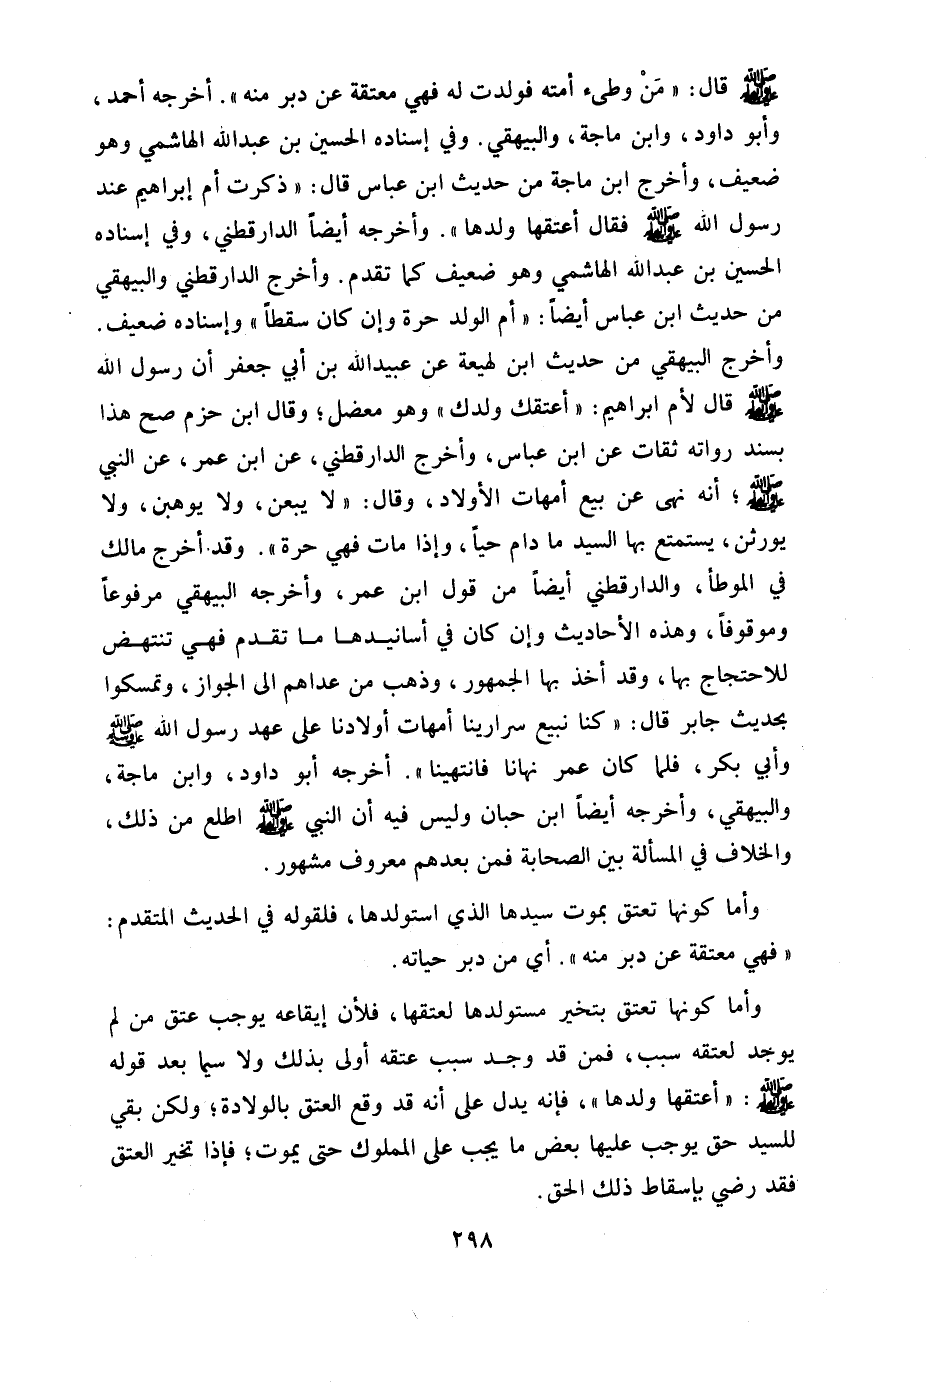 ﷺ قال: « مَنْ وطىء أمته فولدت له فهي معتقة عن دبر منه ». أخرجه أحمد ،
وأبو داود ، وابن ماجة ، والبيهقي. وفي إسناده الحسين بن عبدالله الهاشمي وهو
ضعيف ، وأخرج ابن ماجة من حديث ابن عباس قال: « ذكرت أم إبراهيم عند
رسول الله ﷺ فقال أعتقها ولدها ». وأخرجه أيضاً الدارقطني ، وفي إسناده
الحسين بن عبدالله الهاشمي وهو ضعيف كما تقدم. وأخرج الدارقطني والبيهقي
من حديث ابن عباس أيضاً : « أم الولد حرة وإن كان سقطاً » وإسناده ضعيف.
وأخرج البيهقي من حديث ابن لهيعة عن عبيدالله بن أبي جعفر أن رسول الله
ﷺ قال لأم ابراهيم: « أعتقك ولدك » وهو معضل؛ وقال ابن حزم صح هذا
بسند رواته ثقات عن ابن عباس، وأخرج الدارقطني، عن ابن عمر، عن النبي
ﷺ ؛ أنه نهى عن بيع أمهات الأولاد ، وقال: « لا يبعن ، ولا يوهبن ، ولا
يورثن ، يستمتع بها السيد ما دام حياً ، وإذا مات فهي حرة ». وقد أخرج مالك
في الموطأ ، والدارقطني أيضاً من قول ابن عمر ، وأخرجه البيهقي مرفوعاً
وموقوفاً ، وهذه الأحاديث وإن كان في أسانيدها ما تقدم فهي تنتهض
للاحتجاج بها ، وقد أخذ بها الجمهور ، وذهب من عداهم الى الجواز ، وتمسكوا
بحديث جابر قال: « كنا نبيع سرارينا أمهات أولادنا على عهد رسول الله ﷺ
وأبي بكر ، فلما كان عمر نهانا فانتهينا ». أخرجه أبو داود ، وابن ماجة ،
والبيهقي ، وأخرجه أيضاً ابن حبان وليس فيه أن النبي ﷺ اطلع من ذلك ،
والخلاف في المسألة بين الصحابة فمن بعدهم معروف مشهور .
وأما كونها تعتق بموت سيدها الذي استولدها ، فلقوله في الحديث المتقدم :
« فهي معتقة عن دبر منه ». أي من دبر حياته .
وأما كونها تعتق بتخير مستولدها لعتقها ، فلأن إيقاعه يوجب عتق من لم
يوجد لعتقه سبب ، فمن قد وجد سبب عتقه أولى بذلك ولا سيما بعد قوله
ﷺ : « أعتقها ولدها » ، فإنه يدل على أنه قد وقع العتق بالولادة؛ ولكن بقي
للسيد حق يوجب عليها بعض ما يجب على المملوك حتى يموت؛ فإذا تخير العتق
فقد رضي بإسقاط ذلك الحق .
٢٩٨